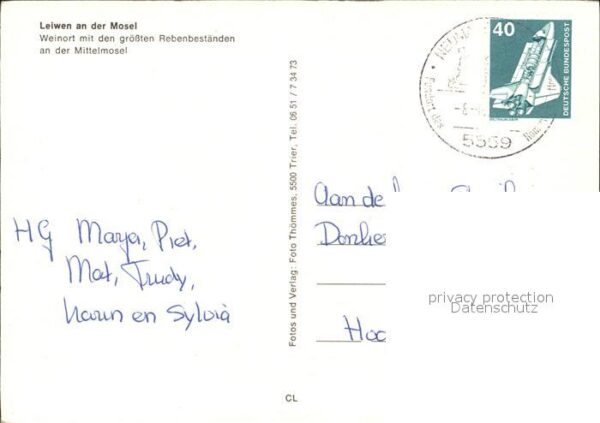 Leiwen an der Mosel
Weinort mit den größten Rebenbeständen
an der Mittelmosel
40
DEUTSCHE BUNDESPOST
5559
Fotos und Verlag: Foto Thömmes, 5500 Trier, Tel. 06 51 / 7 34 73
Aan de
HG Marja, Piet,
Mat, Trudy,
Karin en Sylvia
privacy protection
Datenschutz
CL